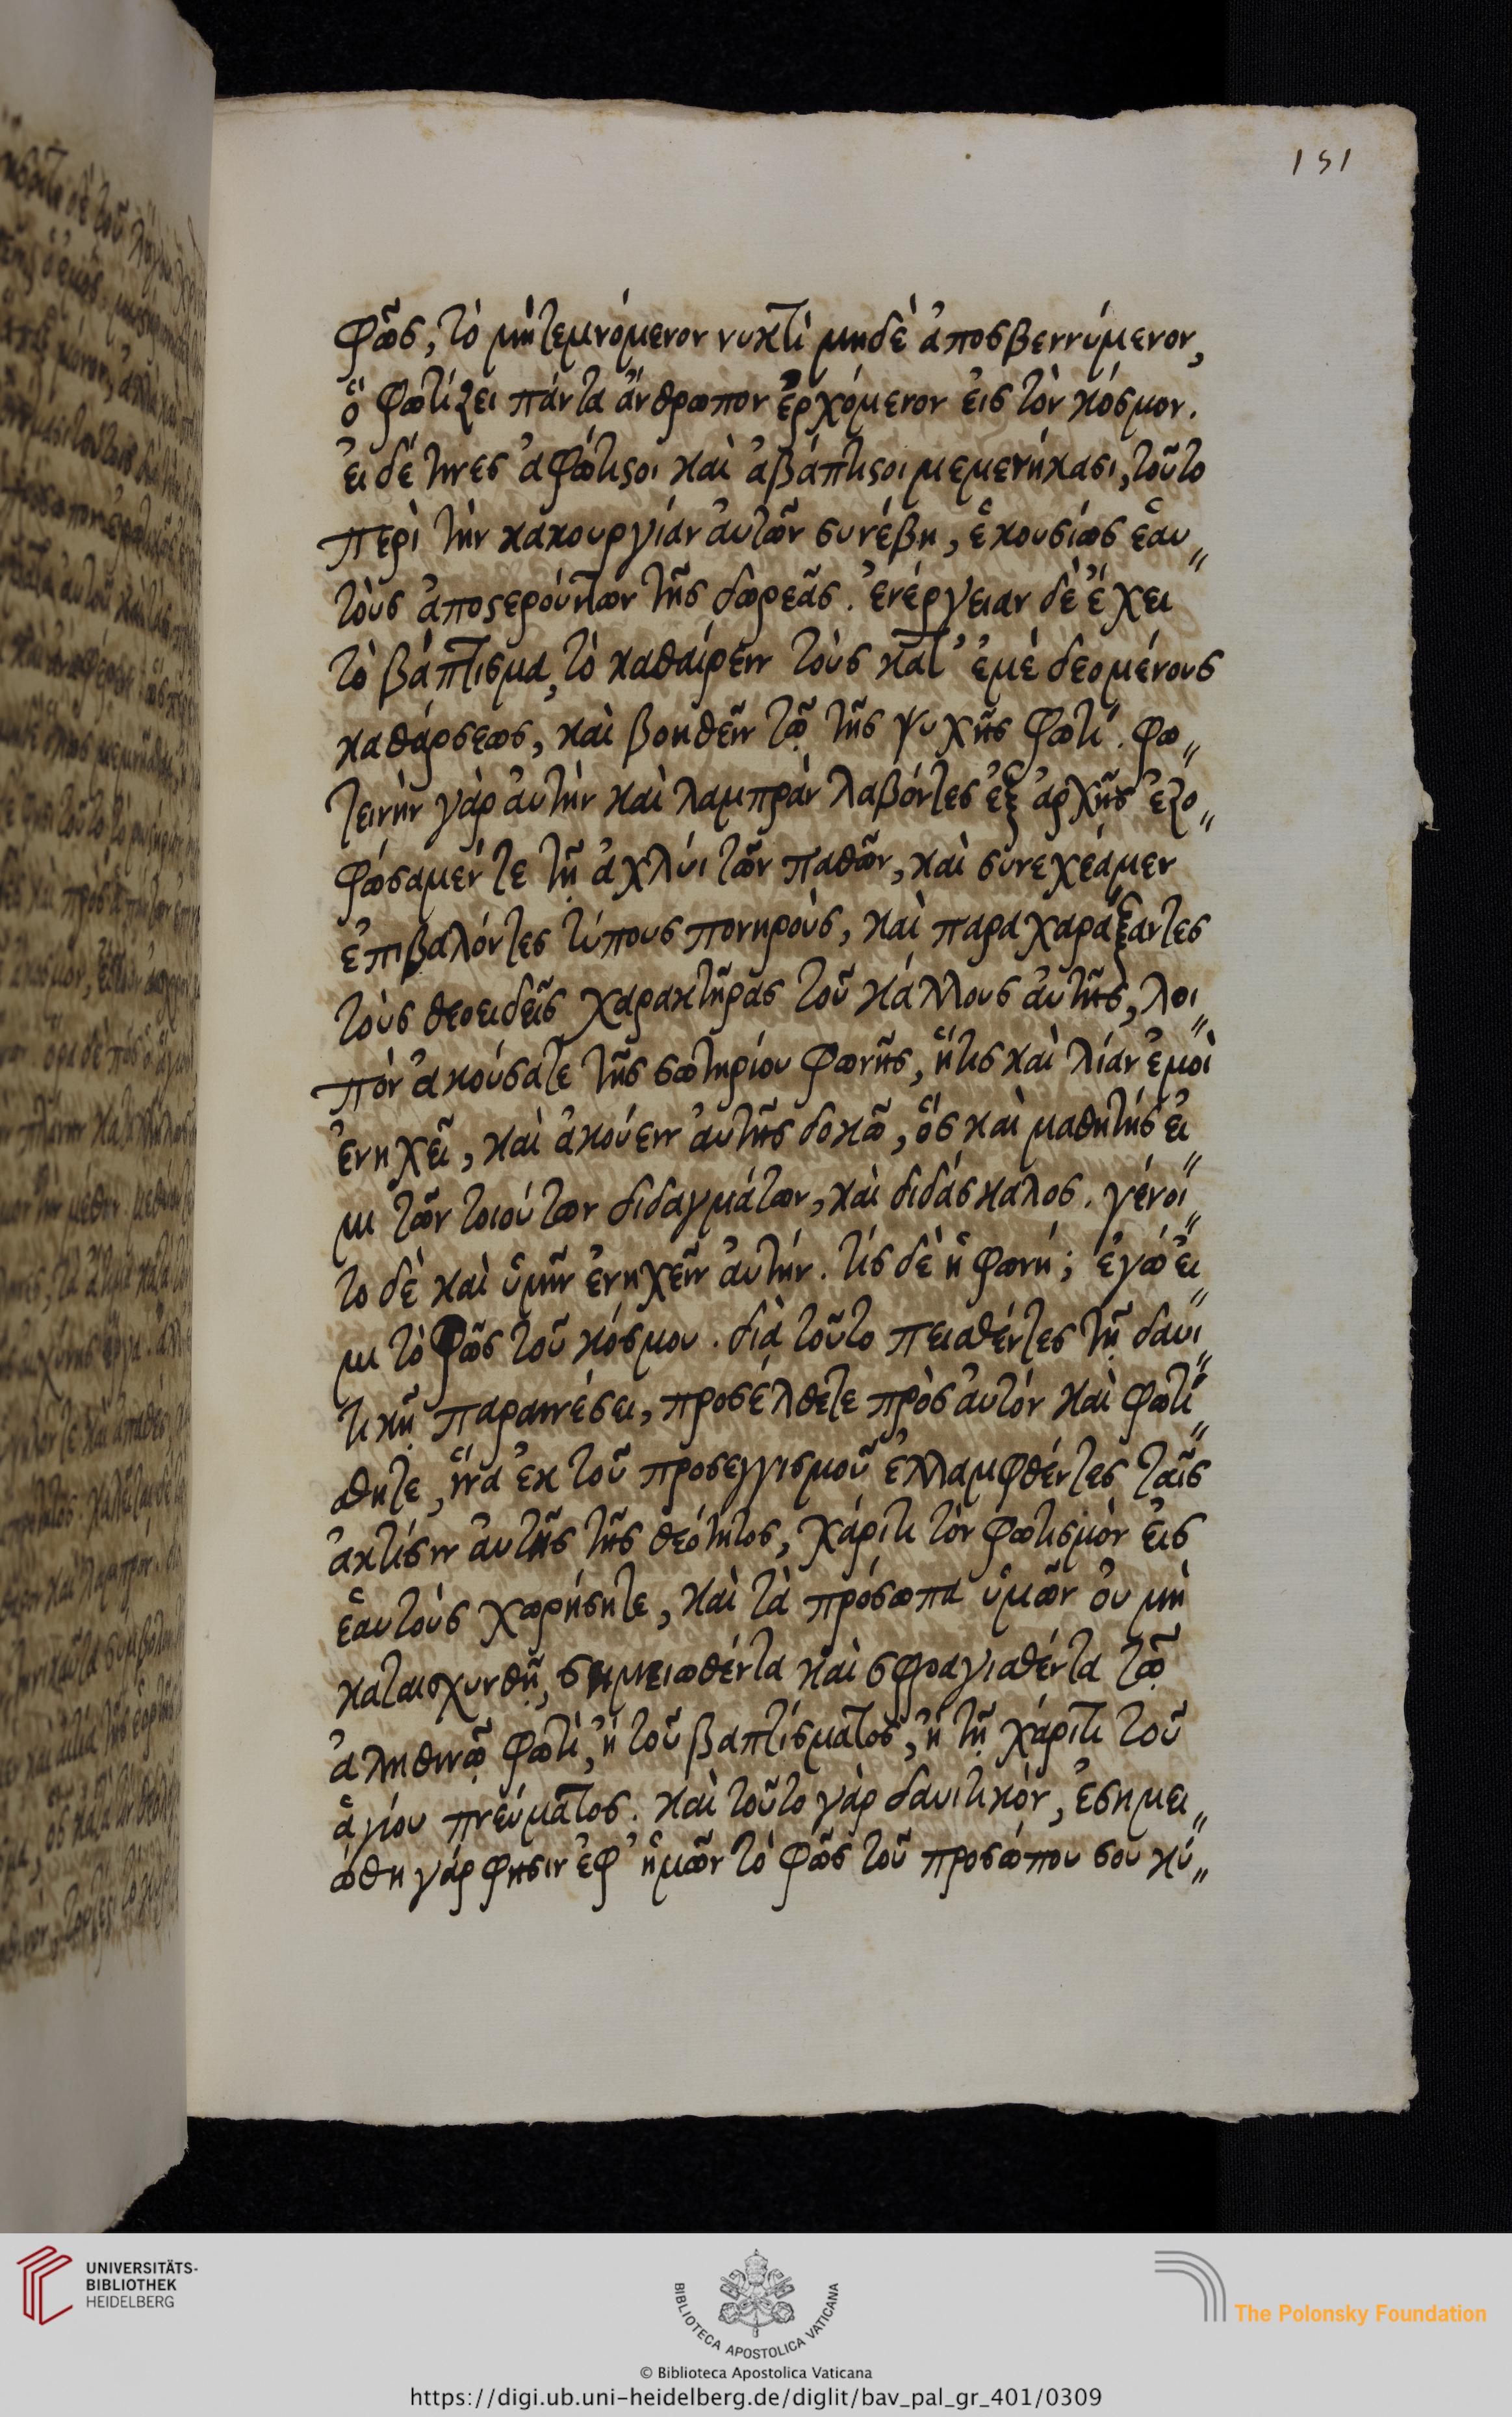 151
φῶς, τὸ μὴ τεμνόμενον νυκτὶ μηδὲ ἀποσβεννύμενον,
ὃ φωτίζει πάντα ἄνθρωπον ἐρχόμενον εἰς τὸν κόσμον.
εἰ δέ τινες ἀφώτιστοι καὶ ἀβάπτιστοι μεμενήκασι, τοῦτο
περὶ τὴν κακουργίαν ἀυτῶν συνέβη, ἑκουσίως ἑαυ〃
τοὺς ἀποστερούντων τῆς δωρεᾶς. ἐνέργειαν δὲ ἔχει
τὸ βάπτισμα, τὸ καθαίρειν τοὺς κατ' ἐμὲ δεομένους
καθάρσεως, καὶ βοηθεῖν τῷ τῆς ψυχῆς φωτί. φω〃
τεινὴν γὰρ ἀυτὴν καὶ λαμπρὰν λαβόντες ἐξ ἀρχῆς ἐζο〃
φώσαμέν τε τῇ ἀχλύϊ τῶν παθῶν, καὶ συνεχέαμεν
ἐπιβαλόντες τύπους πονηροὺς, καὶ παραχαράξαντες
τοὺς θεοειδεῖς χαρακτῆρας τοῦ κάλλους ἀυτῆς, λοι〃
πὸν ἀκούσατε τῆς σωτηρίου φωνῆς, ἥτις καὶ λίαν ἐμοὶ
ἐνηχεῖ, καὶ ἀκούειν ἀυτῆς δοκῶ, ὃς καὶ μαθητής εἰ〃
μι τῶν τοιούτων διδαγμάτων, καὶ διδάσκαλος. γένοι〃
το δὲ καὶ ὑμῖν ἐνηχεῖν ἀυτήν. τίς δὲ ἡ φωνή; ἐγώ εἰ〃
μι τὸ φῶς τοῦ κόσμου. διὰ τοῦτο πεισθέντες τῇ δαυι〃
τικῇ παραινέσει, προσέλθετε πρὸς ἀυτόν καὶ φωτί〃
σθητε, ἵνα ἐκ τοῦ προσεγγισμοῦ ἐλλαμφθέντες ταῖς
ἀκτίσιν ἀυτῆς τῆς θεότητος, χάριτι τὸν φωτισμὸν εἰς
ἑαυτοὺς χωρήσητε, καὶ τὰ πρόσωπα ὑμῶν ὀυ μὴ
καταισχυνθῇ, σημειωθέντα καὶ σφραγισθέντα τῷ
ἀληθινῷ φωτί, ἢ τοῦ βαπτίσματος, ἢ τῇ χάριτι τοῦ
ἁγίου πνεύματος. καὶ τοῦτο γὰρ δαυιτικὸν, ἐσημει〃
ώθη γάρ φησιν ἐφ' ἡμῶν τὸ φῶς τοῦ προσώπου σου κύ〃
UNIVERSITÄTS-
BIBLIOTHEK
HEIDELBERG
BIBLIOTECA APOSTOLICA VATICANA
The Polonsky Foundation
© Biblioteca Apostolica Vaticana
https://digi.ub.uni-heidelberg.de/diglit/bav_pal_gr_401/0309